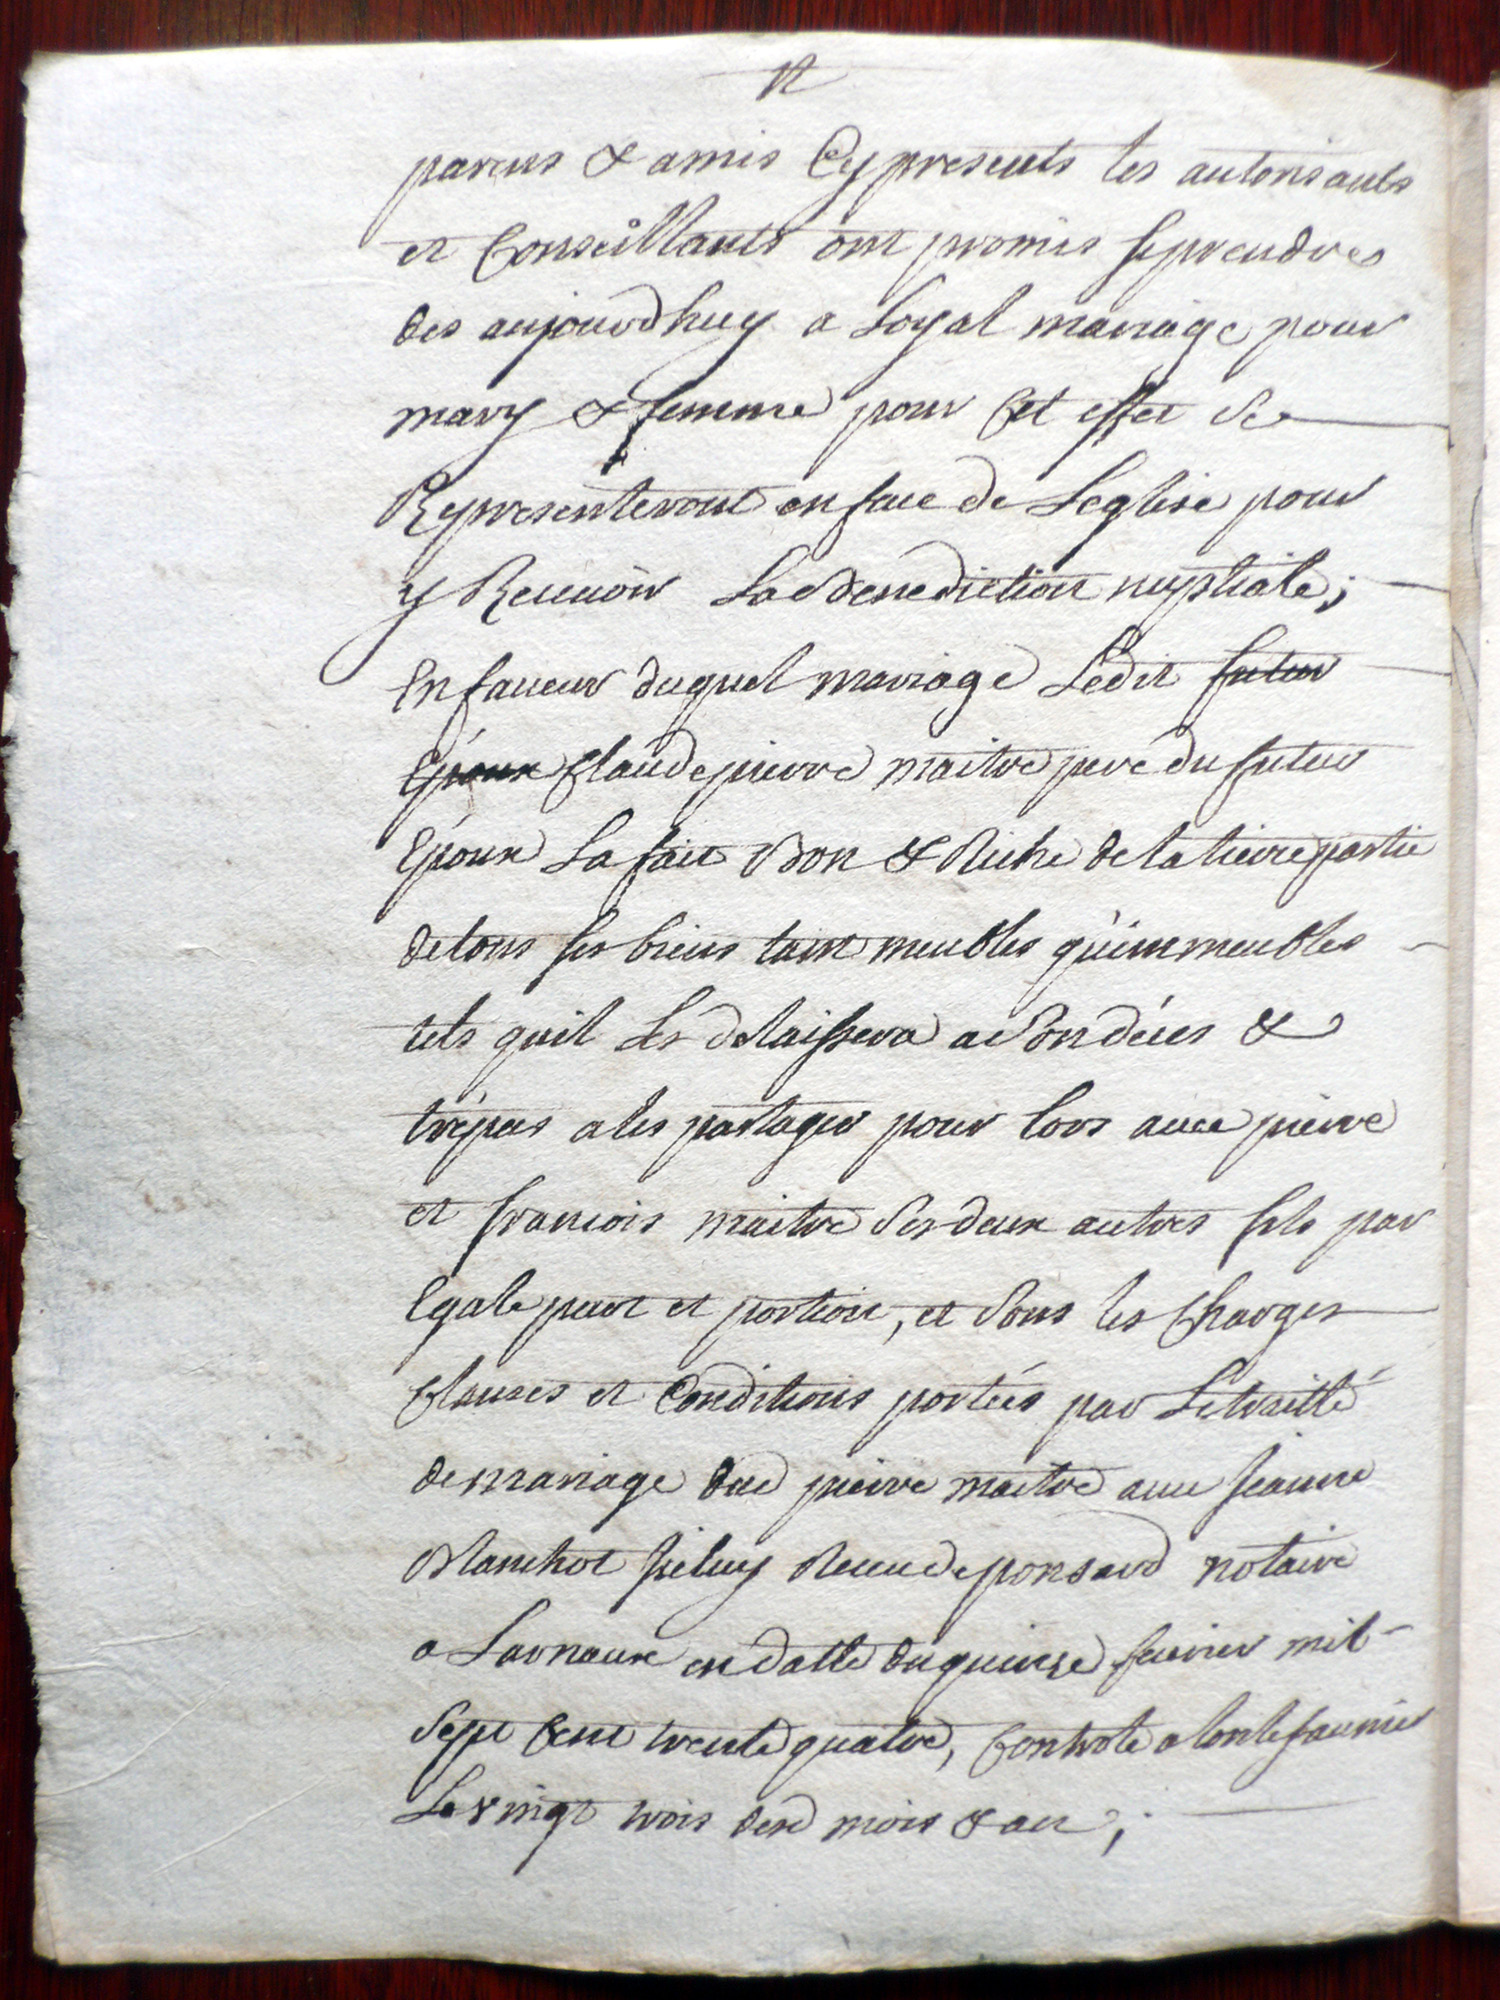 parens & amis Cy presents les autorisants
et Conseillants ont promis se prendre
des aujourdhuy a Loyal mariage pour
mary & femme pour Cet effet Se
Representeront en face de Leglise pour
y Recevoir La Benediction nuptiale;
En faveur duquel mariage Ledit futur
Epoux Claude pierre maitre pere du futur
Epoux La fait Bon & Riche de la tierce partie
de tous ses biens tant meubles qu'immeubles
tels quil Les delaissera a Son décés &
trépas a les partager pour lors avec pierre
et francois maitre Ses deux autres fils par
Egale part et portion, et Sous les Charges
Clauses et Conditions portées par Le traitté
de mariage dud pierre maitre avec Jeanne
Blanchot Iceluy Recu de ponsard notaire
a Larnaux en datte du quinze fevrier mil
Sept Cent trente quatre, Controlé a
Le vingt trois desd mois & an;